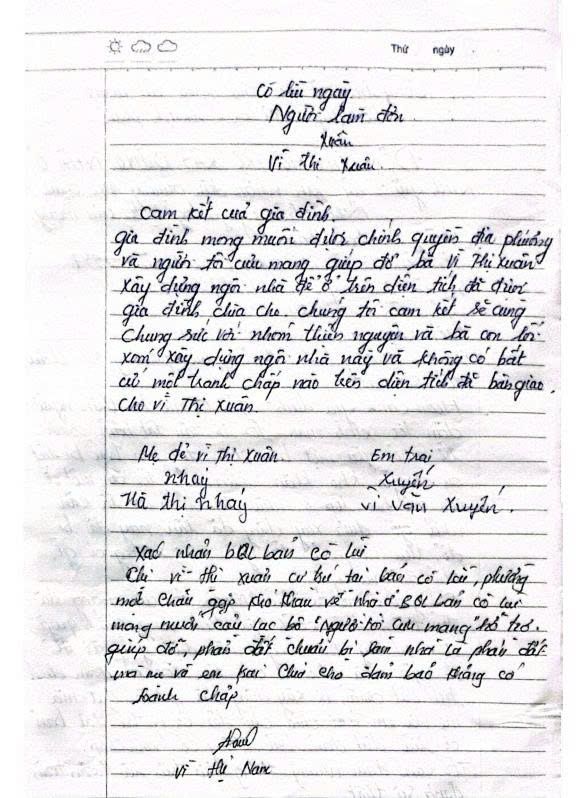 Thứ ngày
Cỏ lùi ngày
Người làm đơn
Xuân
Vi Thị Xuân.
Cam kết cuả gia đình,
gia đình mong muốn được chính quyền địa phương
và người tôi cưu mang giúp đỡ bà Vi Thị Xuân
Xây dựng ngôi nhà để ở trên diện tích đã được
gia đình chia cho. chúng tôi cam kết sẽ cùng
Chung sức với nhóm thiện nguyện và bà con lối
xóm xây dựng ngôi nhà này và không có bất
cứ một tranh chấp nào trên diện tích đã bàn giao.
Cho vi Thị Xuân.
Mẹ đẻ vi Thị Xuân. Em trai
nhay Xuyến
Hà thị nháy vi văn Xuyến.
Xác nhận BQL bản cỏ lùi
Chị vi thị xuân cư trú tại bản cỏ lùi, phường
mộc Châu gặp khó khăn về nhà ở BQL bản cỏ lùi
mong muốn câu lạc bộ "Người tôi cưu mang" hỗ trợ.
giúp đỡ, phần đất chuẩn bị làm nhà là phần đất
mà mẹ và em trai Chia cho đảm bảo không có
tranh chấp
vi thị Nam